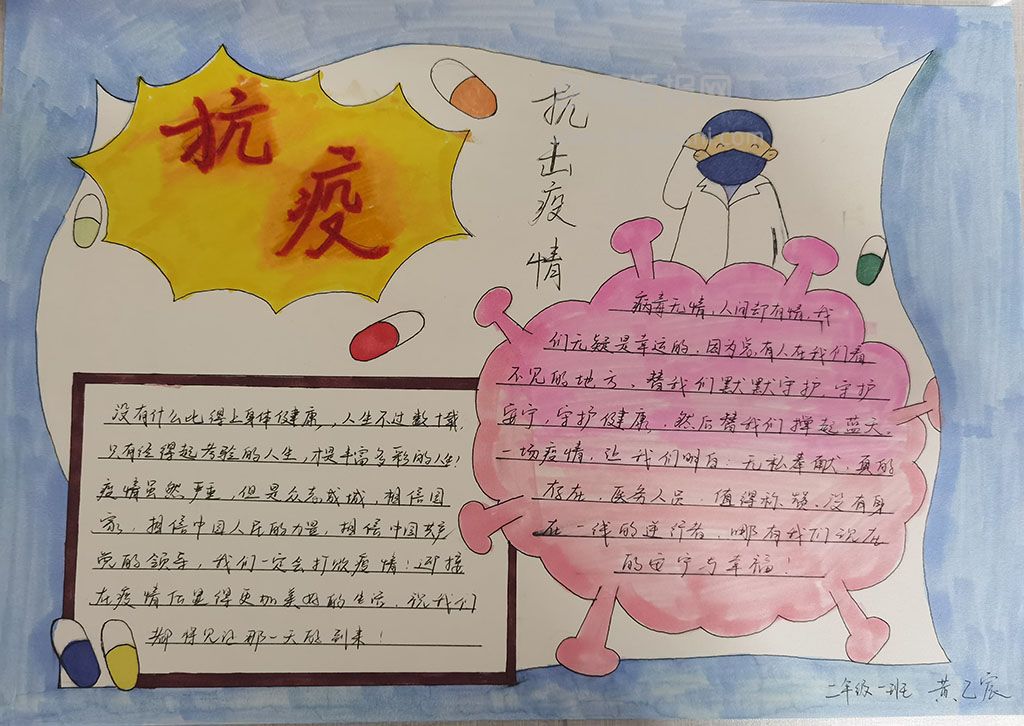 抗疫
抗击疫情
没有什么比得上身体健康,人生不过数十载,
只有经得起考验的人生,才是丰富多彩的人生!
疫情虽然严重,但是众志成城,相信国
家,相信中国人民的力量,相信中国共产
党的领导,我们一定会打败疫情!迎接
在疫情后显得更加美好的生活,祝我们
都得见证那一天的到来!
病毒无情,人间却有情,我
们无疑是幸运的,因为总有人在我们看
不见的地方、替我们默默守护,守护
安宁,守护健康,然后替我们撑起蓝天。
一场疫情,让我们明白:无私奉献,真的
存在,医务人员,值得称颂、没有身
在一线的逆行者,哪有我们现在
的安宁与幸福!
二年级一班 黄乙宸